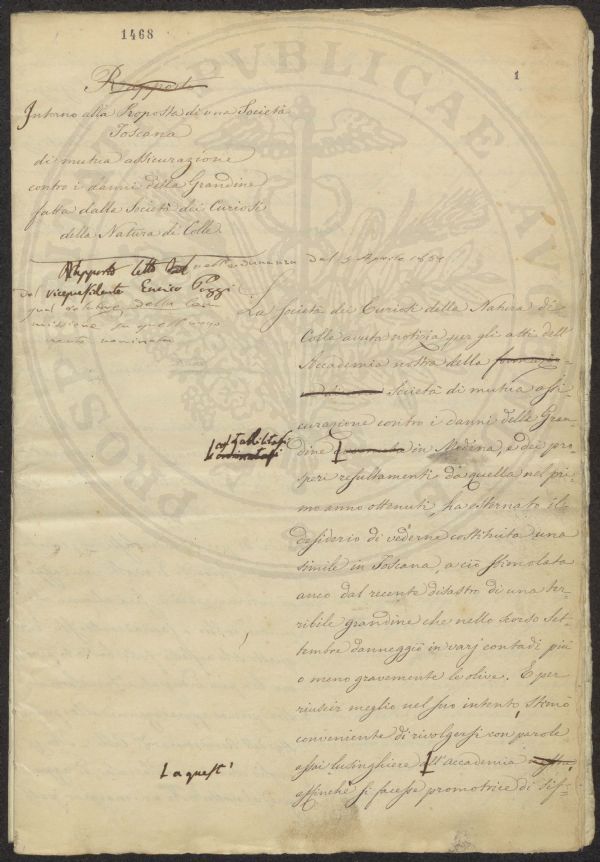 1468
1
Rapporto
Intorno alla Proposta di una Società
Toscana
di mutua assicurazione
contro i danni della Grandine
fatta dalla Società dei Curiosi
della Natura di Colle.
Rapporto letto nell'adunanza
del 5 Agosto
dal vicepresidente Enrico Poggi
qual relatore della Com
missione
nominata
La Società dei Curiosi della Natura di
Colle avuta notizia per gli atti dell'
Accademia nostra della
Società di mutua assi-
curazione contro i danni della Gran-
costabilitasi
dine in Modena, e dei pro-
speri resultamenti da quella nel pri-
mo anno ottenuti, ha esternato il
desiderio di vederne costituita una
simile in Toscana, a ciò stimolata
anco dal recente disastro di una ter-
ribile grandine che nello scorso Set-
tembre danneggiò in varj contadi più
o meno gravemente le olive. E per
riuscir meglio nel suo intento, stimò
conveniente di rivolgersi con parole
assai lusinghiere all'Accademia
a quest'
affinchè si facesse promotrice di sif-
PROSPERITATI
PUBLICAE AU